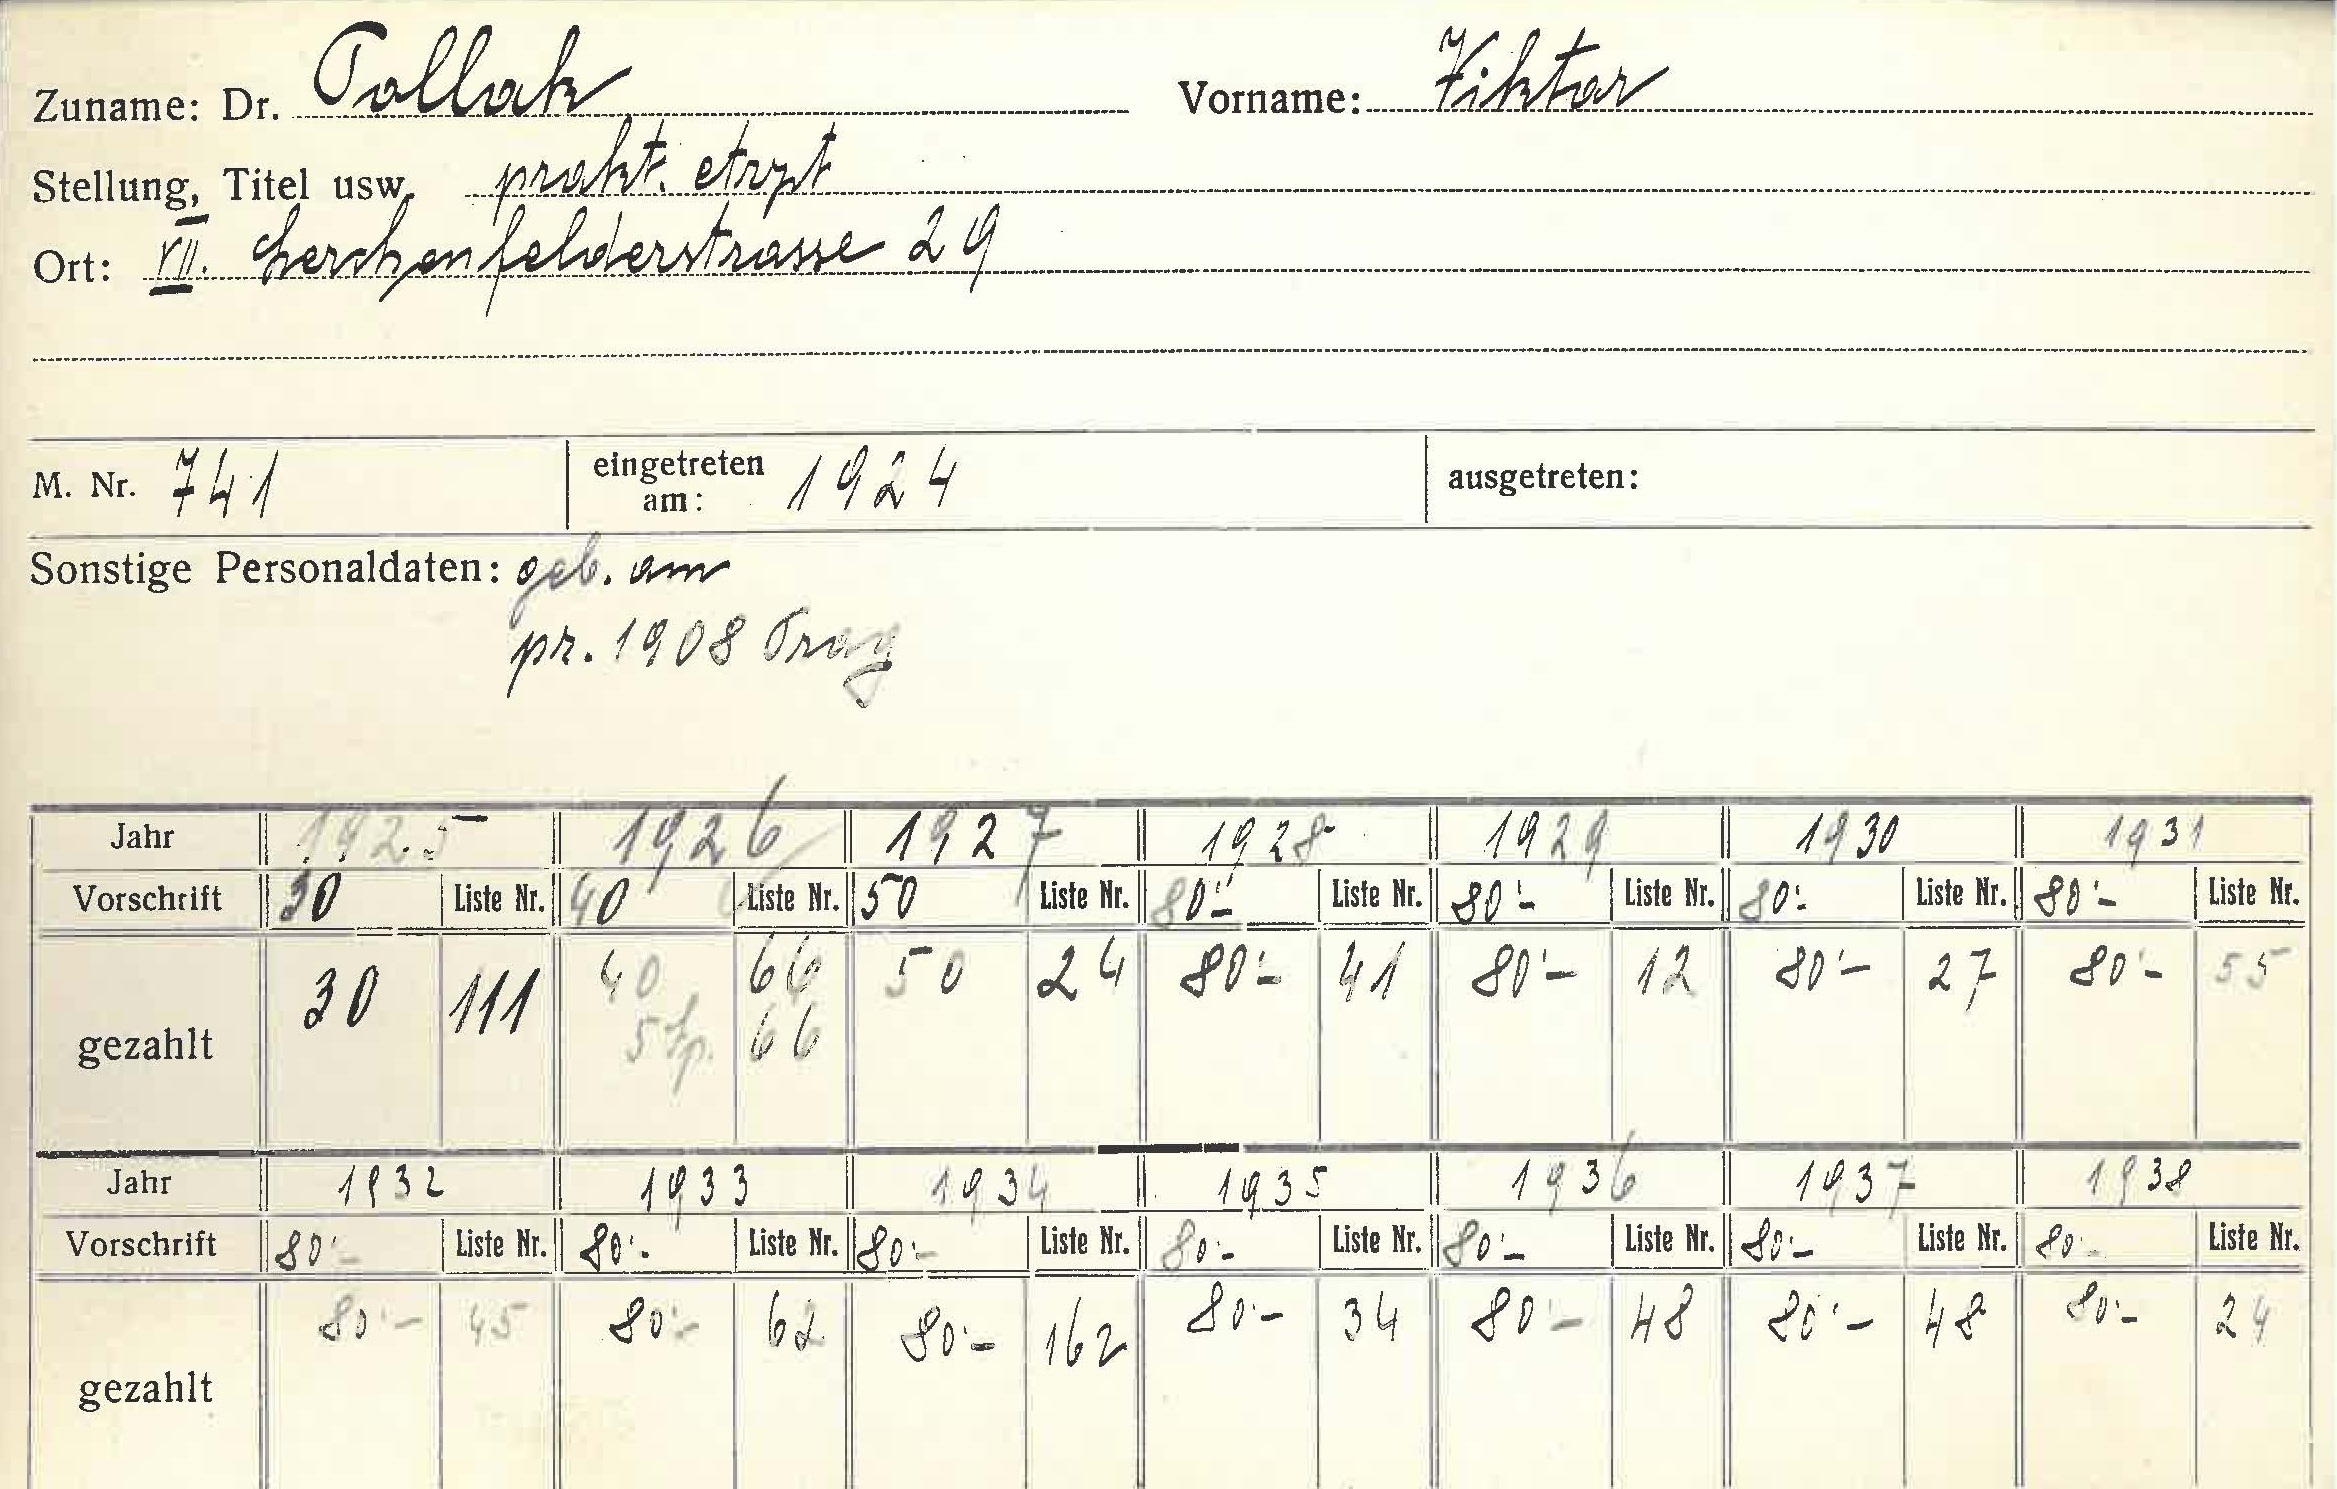 Zuname: Dr. Pollak Vorname: Viktor
Stellung, Titel usw. prakt. Arzt
Ort: VII. Lerchenfelderstrasse 29
M. Nr. 741 eingetreten am: 1924 ausgetreten:
Sonstige Personaldaten: geb. am
pr. 1908 Prag
Jahr 1925 1926 1927 1928 1929 1930 1931
Vorschrift 30 Liste Nr. 40 Liste Nr. 50 Liste Nr. 80'- Liste Nr. 80'- Liste Nr. 80'- Liste Nr. 80'- Liste Nr.
gezahlt 30 111 40 66 50 24 80'- 41 80'- 12 80'- 27 80'- 55
5 Sp. 66
Jahr 1932 1933 1934 1935 1936 1937 1938
Vorschrift 80'- Liste Nr. 80'- Liste Nr. 80'- Liste Nr. 80'- Liste Nr. 80'- Liste Nr. 80'- Liste Nr. 80'- Liste Nr.
gezahlt 80'- 45 80'- 62 80'- 162 80'- 34 80'- 48 80'- 48 80'- 24